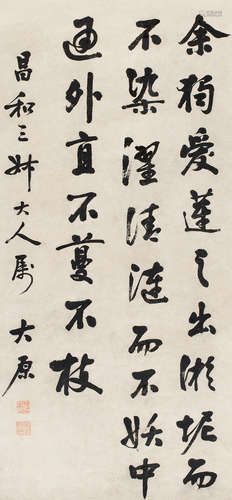 余独愛蓮之出淤坭而
不染濯清漣而不妖中
通外直不蔓不枝
昌和三姊大人属 大原